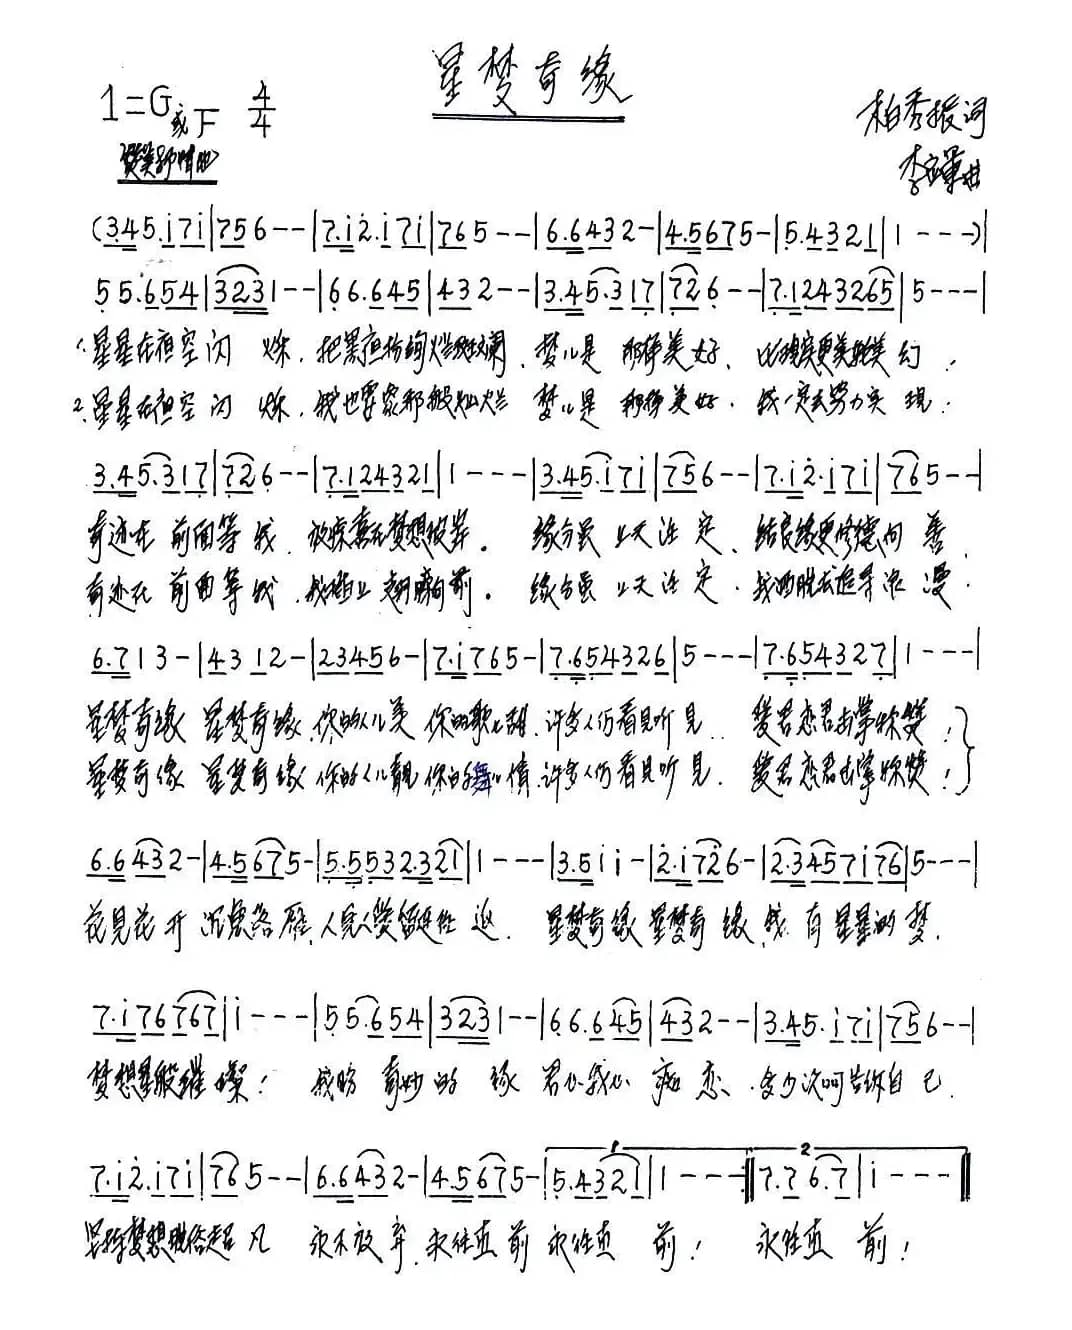 星梦奇缘
1=G或F 4/4
柏秀振词
李 曲
(3.45.i7i|756--|7.i2.i7i|765--|6.6432-|4.5675-|5.4321|1---)|
55.654|3231--|66.645|432--|3.45.317|726--|7.1243265|5---|
1.星星在夜空闪烁,把黑夜扮绚烂斑斓,梦儿是那样美好,比现实更美 幻,
2.星星在夜空闪烁,我也要像那般灿烂 梦儿是那样美好,我一定去努力实现.
3.45.317|726--|7.124321|1---|3.45.i7i|756--|7.i2.i7i|765--|
奇迹在前面等我, 在梦想彼岸。 缘分虽上天注定,结良缘更 向善,
奇迹在前面等我,我 向前。 缘分虽上天注定,我 去追寻浪漫.
6.713-|4312-|23456-|7.i765-|7.654326|5---|7.654327|1---|
星梦奇缘 星梦奇缘,你的人儿美 你的歌儿甜,许多人仍看见听见. 爱君恋君 !
星梦奇缘 星梦奇缘 你的人儿靓 你的舞儿情,许多人仍看见听见. 爱君恋君 !
6.6432-|4.5675-|5.5532.321|1---|3.5ii-|2.i726-|2.3457i76|5---|
花见花开 沉鱼落雁,人见人爱 返. 星梦奇缘 星梦奇缘,我有星星的梦,
7.i76767|i---|55.654|3231--|66.645|432--|3.45.i7i|756--|
梦想星般璀璨! 我盼奇妙的缘 君心我心痴恋,多少次呵告诉自己.
7.i2.i7i|765--|6.6432-|4.5675-|1 5.4321|1---:|2 7.76.7|i---‖
梦想脱俗超凡 永不放弃,永往直前 永往直前! 永往直前!